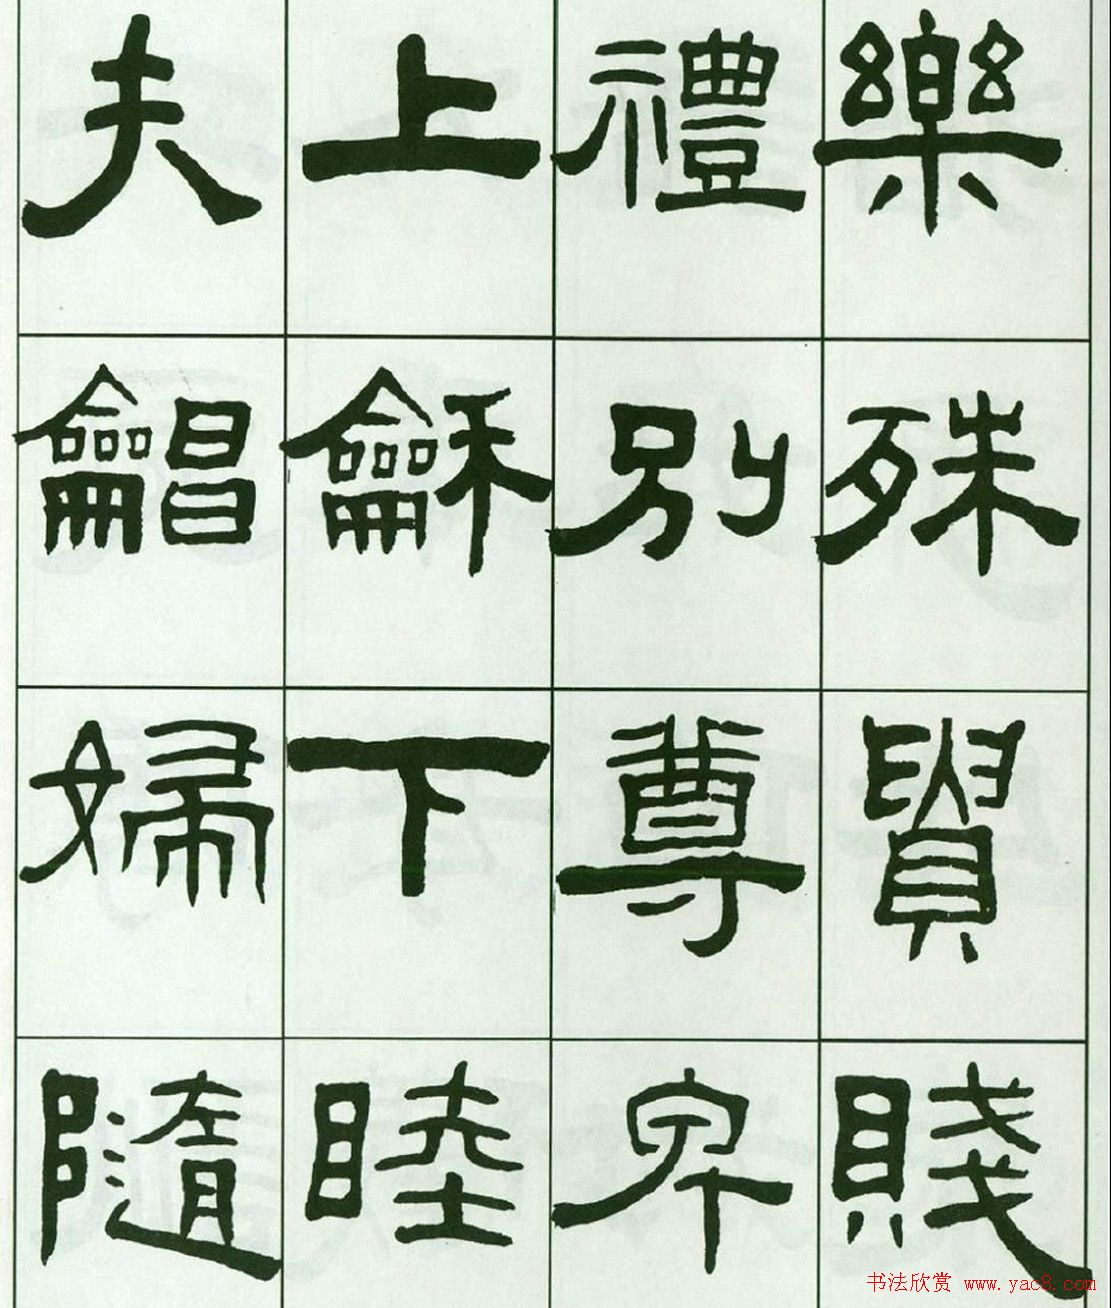 樂殊貴賤
禮別尊卑
上龢下睦
夫唱婦隨
书法欣赏 www.yac8.com